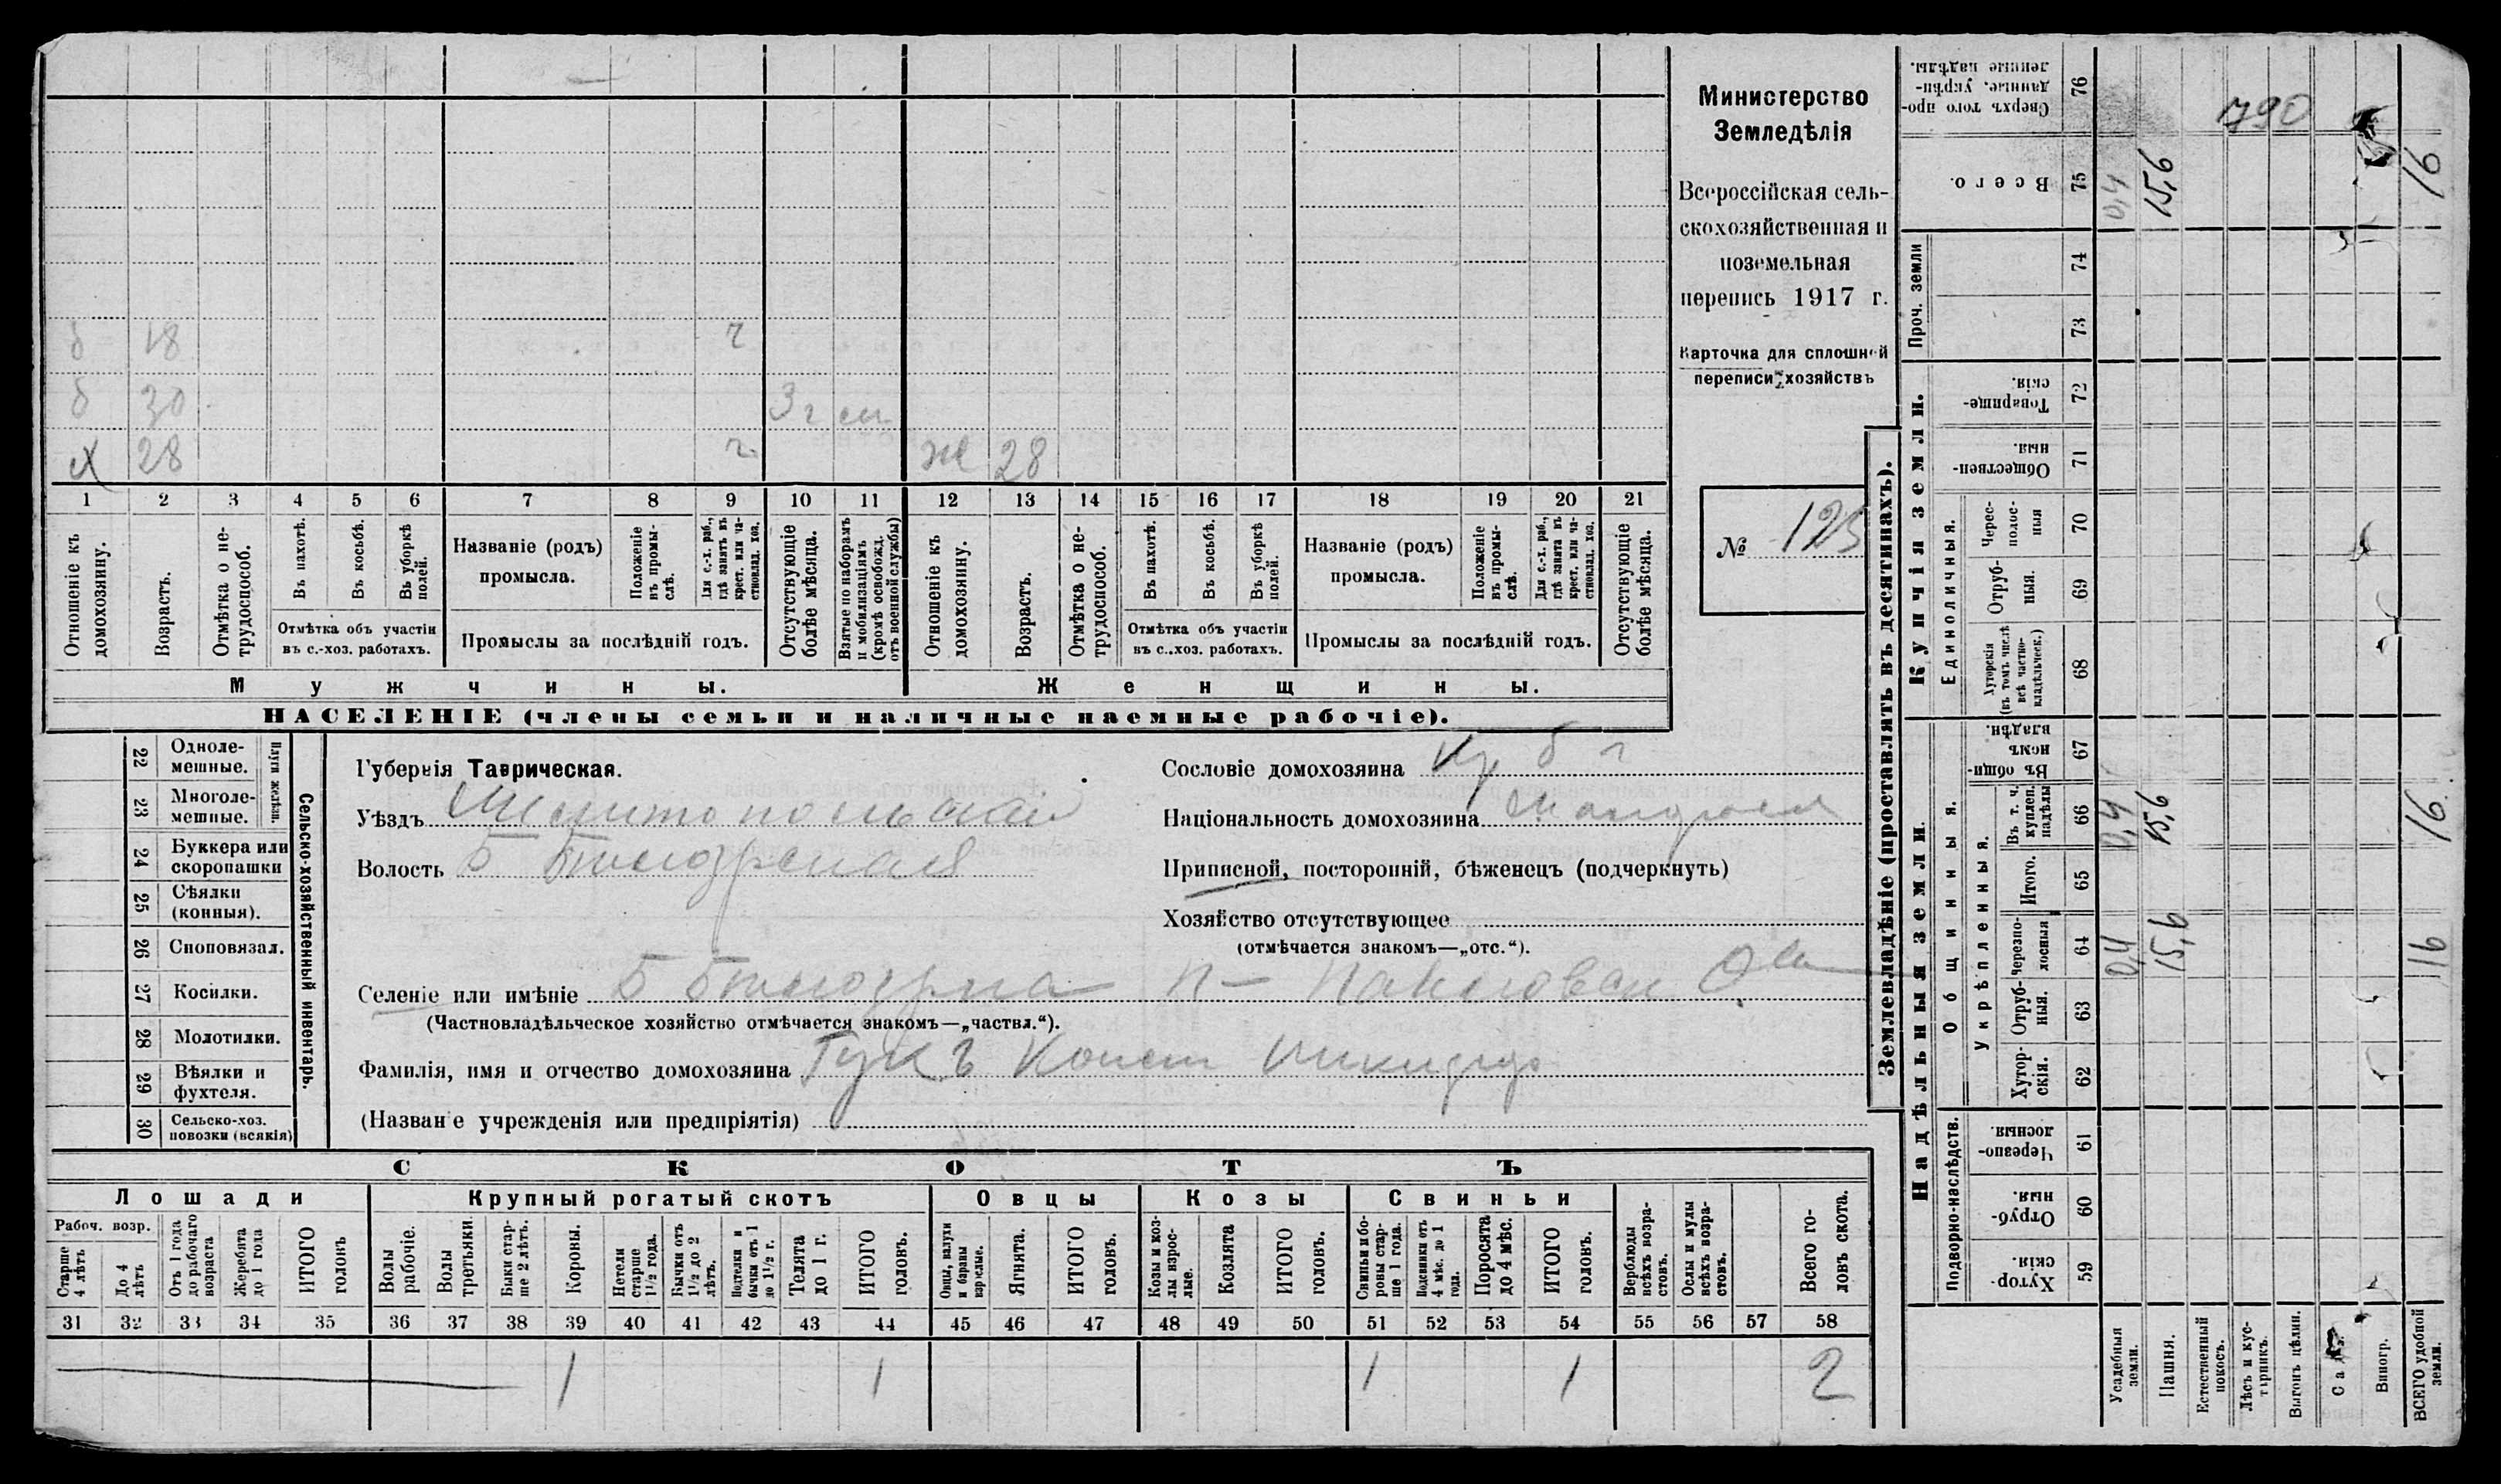 Министерство
Земледѣлія
Всероссійская сель-
скохозяйственная и
поземельная
перепись 1917 г.
Карточка для сплошной
переписи хозяйствъ
№ 123
б 18 г
б 30 3 г
х 28 г ж 28
1 2 3 4 5 6 7 8 9 10 11 12 13 14 15 16 17 18 19 20 21
Отношеніе къ домохозяину.
Возрастъ.
Отмѣтка о не-трудоспособ.
Въ пахотѣ.
Въ косьбѣ.
Въ уборкѣ полей.
Отмѣтка объ участіи
въ с.-хоз. работахъ.
Названіе (родъ)
промысла.
Положеніе въ промы-слѣ.
Для с.-х. раб., гдѣ занятъ въ крест. или ча-стновлад. хоз.
Промыслы за послѣдній годъ.
Отсутствующіе болѣе мѣсяца.
Взятые по наборамъ и мобилизаціямъ (кромѣ освобожд. отъ военной службы)
Отношеніе къ домохозяину.
Возрастъ.
Отмѣтка о не-трудоспособ.
Въ пахотѣ.
Въ косьбѣ.
Въ уборкѣ полей.
Отмѣтка объ участіи
въ с.-хоз. работахъ.
Названіе (родъ)
промысла.
Положеніе въ промы-слѣ.
Для с.-х. раб., гдѣ занята въ крест. или ча-стновлад. хоз.
Промыслы за послѣдній годъ.
Отсутствующіе болѣе мѣсяца.
Мужчины.
Женщины.
НАСЕЛЕНІЕ (члены семьи и наличные наемные рабочіе).
Сельско-хозяйственный инвентарь.
Плуги желѣзн.
22 Одноле-
мешные.
23 Многоле-
мешные.
24 Буккера или
скоропашки
25 Сѣялки
(конныя).
26 Сноповязал.
27 Косилки.
28 Молотилки.
29 Вѣялки и
фухтеля.
30 Сельско-хоз.
повозки (всякія)
Губернія Таврическая.
Уѣздъ
Волость Б
Селеніе или имѣніе Б
(Частновладѣльческое хозяйство отмѣчается знакомъ—„частвл.“).
Фамилія, имя и отчество домохозяина Гукъ Конст
(Названіе учрежденія или предпріятія)
Сословіе домохозяина кр
Національность домохозяина
Приписной, посторонній, бѣженецъ (подчеркнуть)
Хозяйство отсутствующее
(отмѣчается знакомъ—„отс.“).
СКОТЪ
Лошади
Крупный рогатый скотъ
Овцы
Козы
Свиньи
Рабоч. возр.
Старше 4 лѣтъ
До 4 лѣтъ
Отъ 1 года до рабочаго возраста
Жеребята до 1 года
ИТОГО головъ
Волы рабочіе.
Волы третьяки.
Быки стар-ше 2 лѣтъ.
Коровы.
Нетели старше 1½ года.
Бычки отъ 1½ до 2 лѣтъ.
Подтелки и бычки отъ 1 до 1½ г.
Телята до 1 г.
ИТОГО головъ.
Овцы, валухи и бараны взрослые.
Ягнята.
ИТОГО головъ.
Козы и коз-лы взрос-лые.
Козлята
ИТОГО головъ.
Свиньи и бо-ровы стар-ше 1 года.
Подсвинки отъ 4 мѣс. до 1 года.
Поросята до 4 мѣс.
ИТОГО головъ.
Верблюды всѣхъ возра-стовъ.
Ослы и мулы всѣхъ возра-стовъ.
Всего го-ловъ скота.
31 32 33 34 35 36 37 38 39 40 41 42 43 44 45 46 47 48 49 50 51 52 53 54 55 56 57 58
1 1 1 1 2
Землевладѣніе (проставлять въ десятинахъ).
Надѣльныя земли.
Купчія земли.
Проч. земли
Подворно-наслѣдств.
Общинныя.
Укрѣпленныя.
Единоличныя.
Хутор-скія. 59
Отруб-ныя. 60
Черезпо-лосныя. 61
Хутор-скія. 62
Отруб-ныя. 63
Черезпо-лосныя 64
Итого. 65
Въ т. ч. куплен. надѣлы 66
Въ общи-номъ владѣн. 67
Хуторскія (въ томъ числѣ всѣ частно-владѣльческ.) 68
Отруб-ныя. 69
Черес-полос-ныя 70
Обществен-ныя 71
Товарище-скія. 72
73
74
Всего. 75
Сверхъ того про-данные, укрѣп-ленные надѣлы. 76
Усадебныя земли. 0,4 0,4 0,4
Пашня. 15,6 15,6 15,6
Естественный покосъ.
Лѣсъ и кус-тарникъ.
Выгонъ цѣлин.
Садъ.
Виногр.
ВСЕГО удобной земли. 16 16 16
790